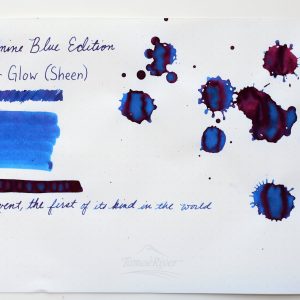 mine Blue Edition
Glow (Sheen)
vent, the first of its kind in the world
Tomoe River